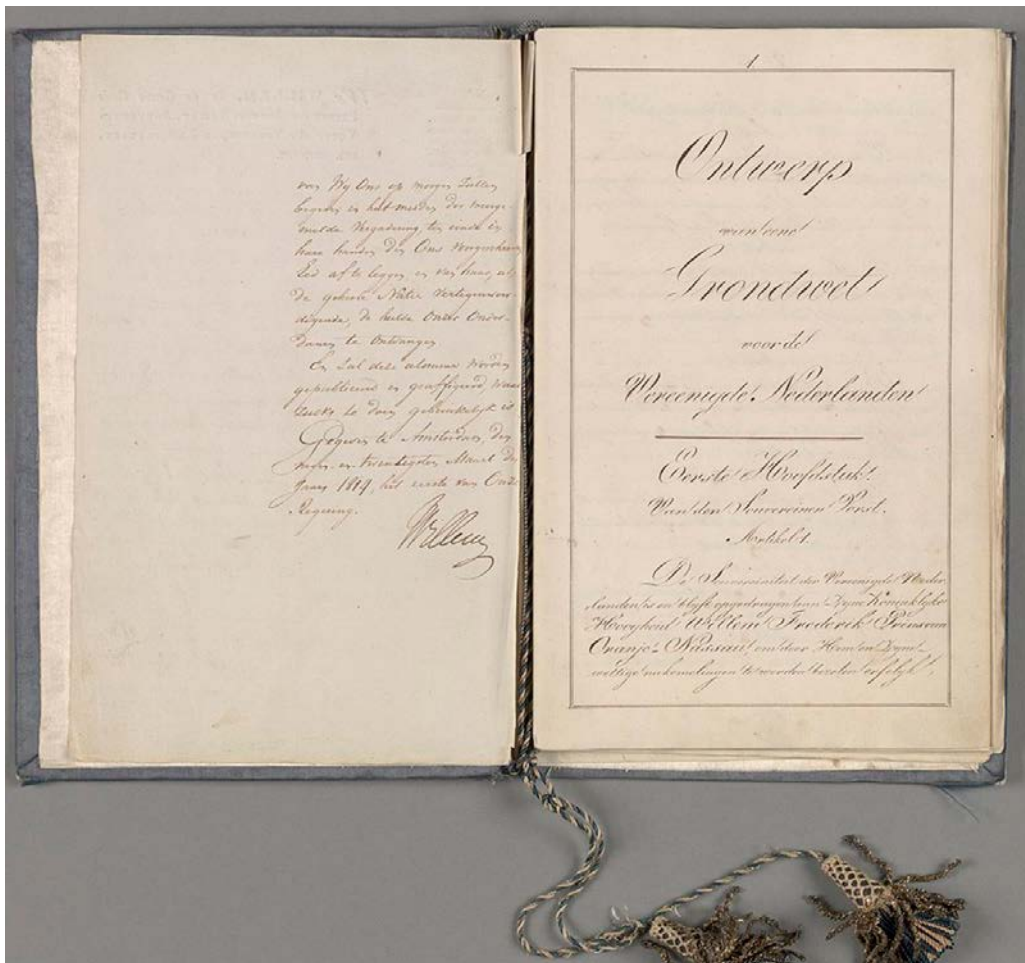 van Wij Ons op morgen zullen
begeven in het midden der meerge-
melde Vergadering, ten einde in
hare handen den Ons voorgeschreven
Eed af te leggen, en van haar, als
de geheele Natie vertegenwoor-
digende, de hulde Onzer Onder-
danen te ontvangen.
En zal deze alomme worden
gepubliceerd en geaffigeerd, waar
zulks te doen gebruikelijk is.
Gegeven te Amsterdam, den
negen-en-twintigsten Maart des
Jaars 1814, het eerste van Onze
Regering.
Willem
1
Ontwerp
van eene
Grondwet
voor de
Vereenigde Nederlanden
Eerste Hoofdstuk.
Van den Souvereinen Vorst.
Artikel 1.
De Souvereiniteit der Vereenigde Neder-
landen is en blijft opgedragen aan Zyne Koninklyke
Hoogheid Willem Frederik Prins van
Oranje-Nassau, om door Hem en Zyne
wettige nakomelingen te worden bezeten erfelyk,